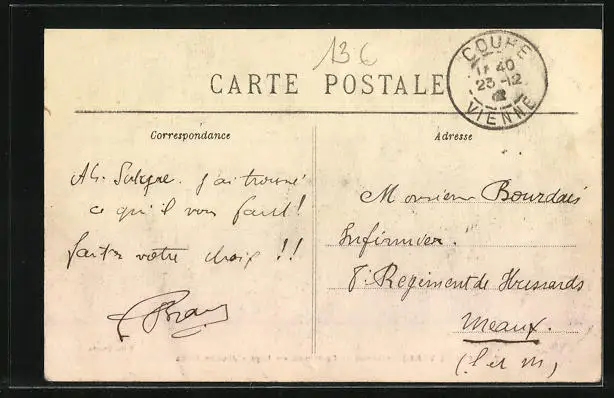 136
CARTE POSTALE
COUHE
11 40
23-12
VIENNE
Correspondance
Adresse
j'ai trouvé
ce qu'il vous faut!
faites votre choix !!
Monsieur Bourdais
Infirmier.
Regiment de Hussards
Meaux.
(S et M)